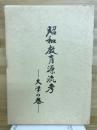 昭和教育源流考
―大学の巻―